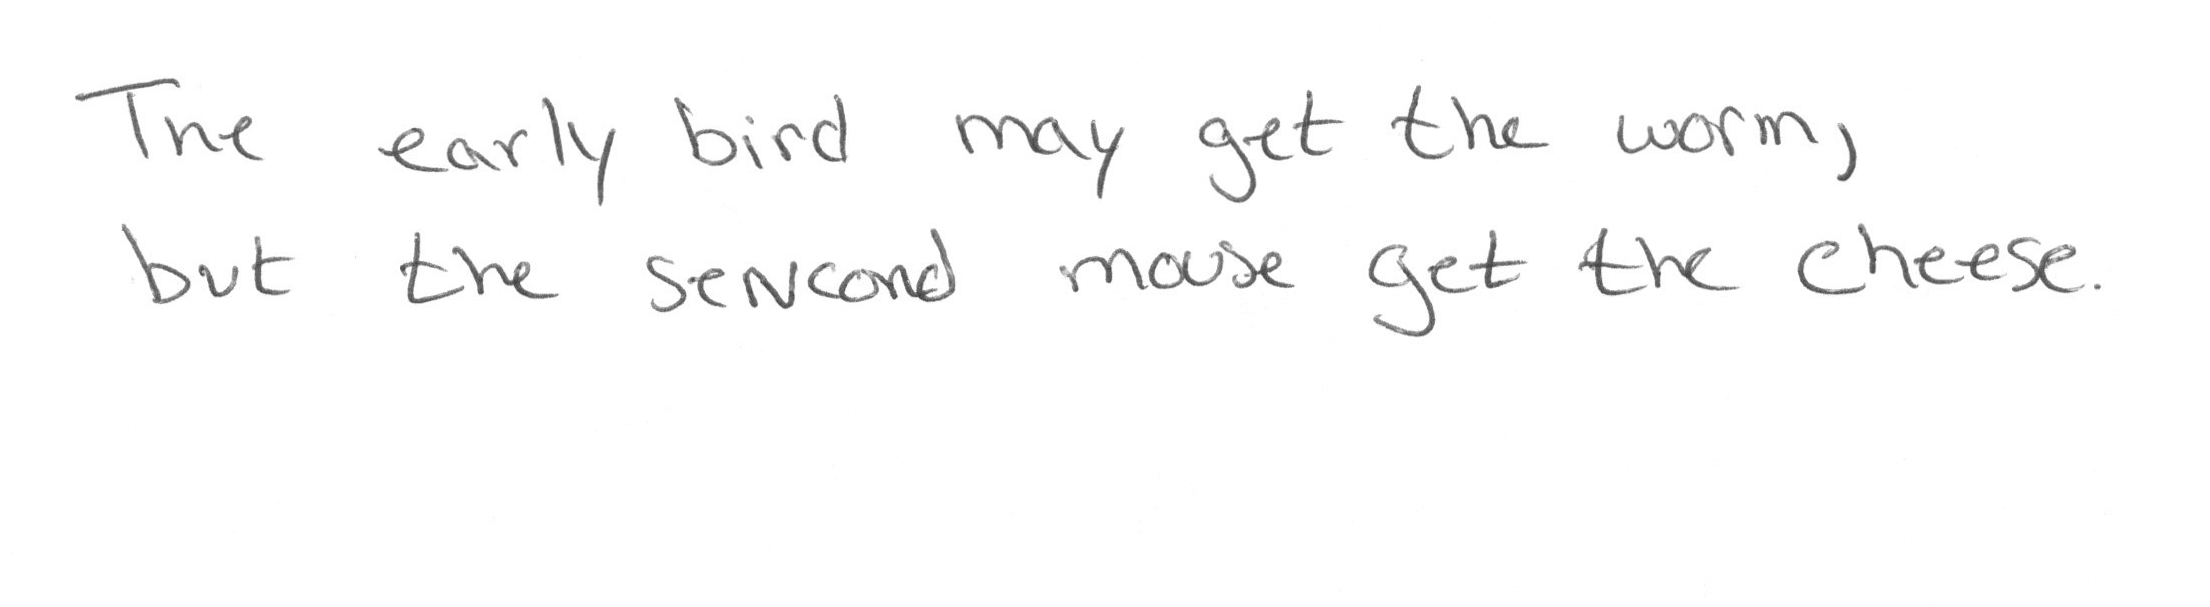 The early bird may get the worm,
but the sencond mouse get the cheese.